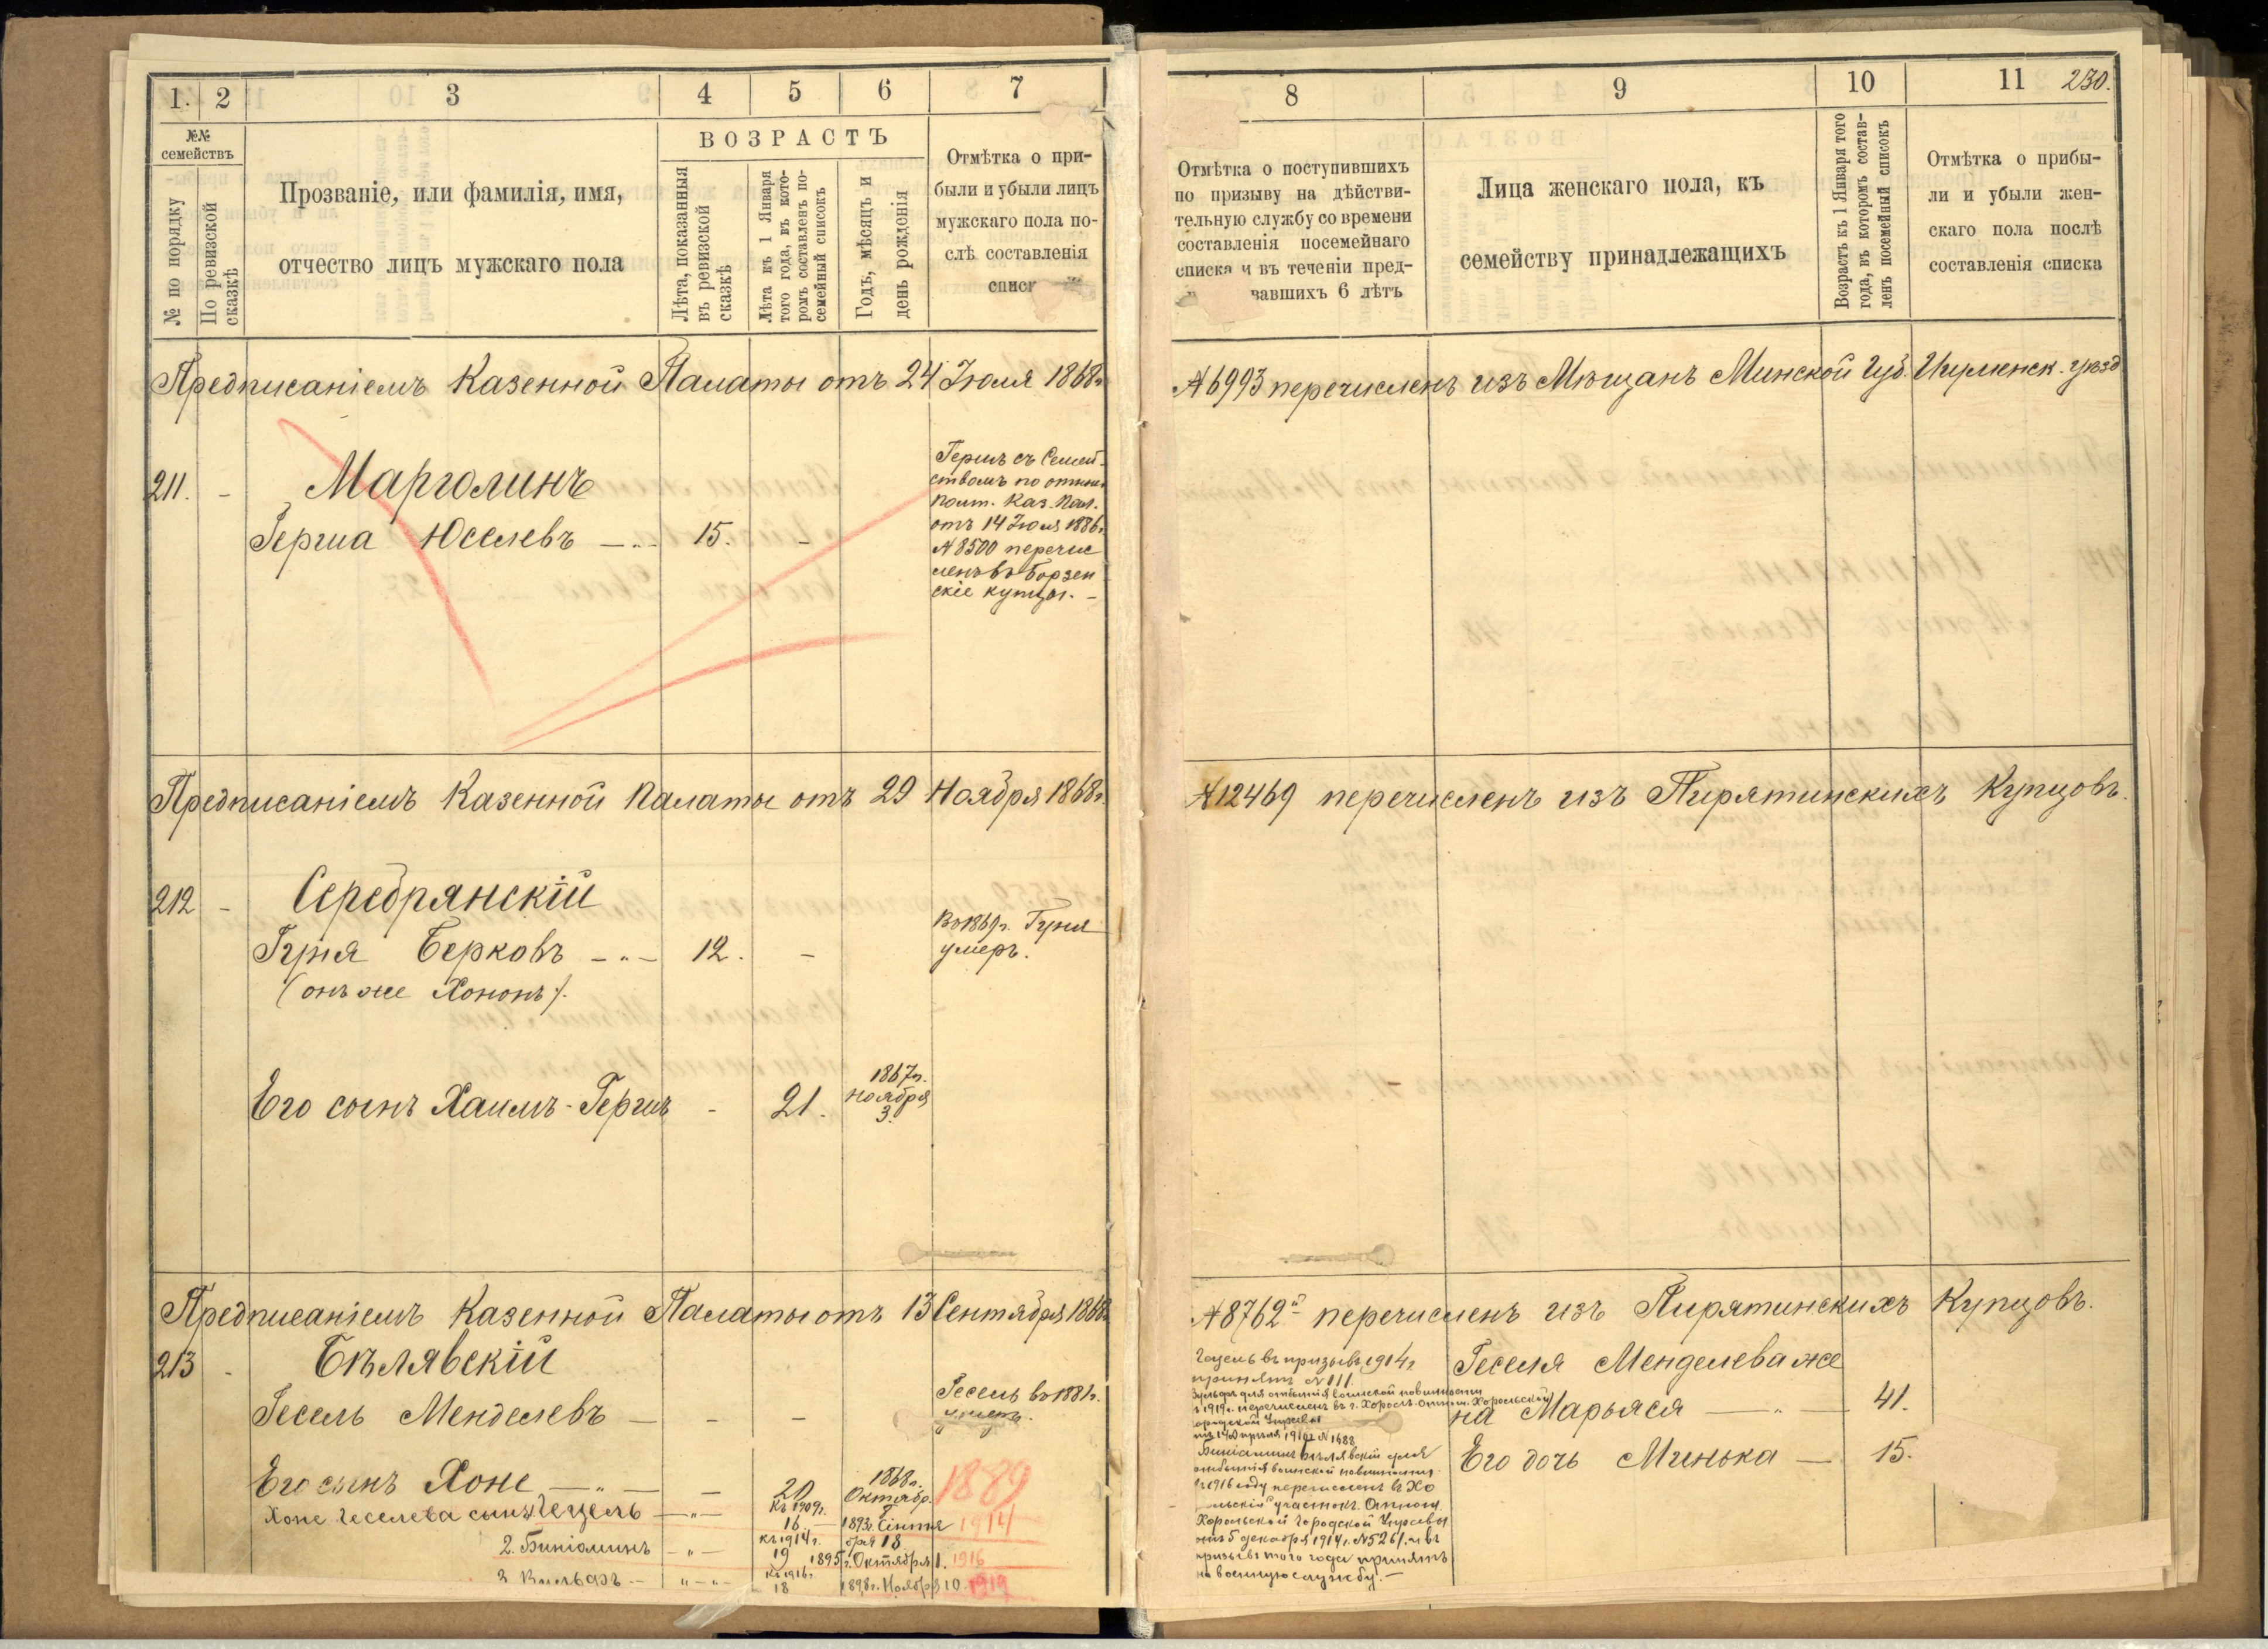 1.
2
3
4
5
6
7
№№ семействъ
№ по порядку
По ревизской сказкѣ
Прозваніе, или фамилія, имя,
отчество лицъ мужскаго пола
ВОЗРАСТЪ
Лѣта, показанныя
въ ревизской
сказкѣ
Лѣта къ 1 Января
того года, въ кото-
ромъ составленъ по-
семейный списокъ
Годъ, мѣсяцъ и
день рожденія
Отмѣтка о при-
были и убыли лицъ
мужскаго пола по-
слѣ составленія
Предписаніемъ Казенной Палаты отъ 24 Іюля 1868г.
211. -
Марголинъ
Герша Юселевъ 15. -
Гершъ съ Семей-
ствомъ по отнош.
Полт. Каз. Пал.
отъ 14 Іюля 1886г.
№ 8500 перечис
ленъ въ Борзен
скіе купцы. -
Предписаніемъ Казенной Палаты отъ 29 Ноября 1868г.
212 -
Серебрянскій
Гуня Берковъ 12. -
(онъ же Хононъ).
Въ 1869г. Гуня
умеръ.
Его сынъ Хаимъ-Гершъ - 21.
1867г.
Ноября
3.
Предписаніемъ Казенной Палаты отъ 13 Сентября 1868г.
213 -
Бѣлявскій
Гесель Менделевъ - -
Гесель въ 1881г.
умеръ.
Его сынъ Хоне - 20
1868г.
Октябр.
1889
Хоне Геселева сынъ Гецель
Къ 1909г.
16
1893г. Сентя
бря 18
1914
2. Биніаминъ
Къ 1914г.
19
1895г. Октября 1.
1916
3 Вульфъ
Къ 1916г.
18
1898г. Ноября 10.
1919
8
9
10
11
230.
Отмѣтка о поступившихъ
по призыву на дѣйстви-
тельную службу со времени
составленія посемейнаго
списка и въ теченіи пред-
вавшихъ 6 лѣтъ
Лица женскаго пола, къ
семейству принадлежащихъ
Возрастъ къ 1 Января того
года, въ которомъ состав-
ленъ посемейный списокъ
Отмѣтка о прибы-
ли и убыли жен-
скаго пола послѣ
составленія списка
№ 6993 перечисленъ изъ Мѣщанъ Минской Губ. Игуменск. уѣзд
№ 12469 перечисленъ изъ Пирятинскихъ Купцовъ.
№ 8762й перечисленъ изъ Пирятинскихъ Купцовъ.
Гецель въ призывъ 1914г
принятъ № 111.
Вульфъ для отбытія воинской повинности
въ 1919г. перечисленъ въ г. Хоролъ. Отнош. Хорольской
Городской Управы
№ 1688
Биніаминъ Бѣлявскій для
отбытія воинской повинности
въ 1916 году перечисленъ въ Хо
рольскій участокъ. Отнош.
Хорольской Городской Управы
отъ 5 декабря 1914г. № 5261. и въ
призывъ того года принятъ
на военную службу. -
Геселя Менделева же
на Марьяся 41.
Его дочь Минька 15.